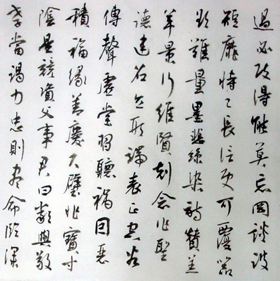 過必改得能莫忘罔談彼
短靡恃己長信使可覆器
欲難量墨悲絲染詩贊羔
羊景行維賢剋念作聖
德建名立形端表正空谷
傳聲虛堂習聽禍因惡
積福緣善慶尺璧非寶寸
陰是競資父事君曰嚴與敬
孝當竭力忠則盡命臨深